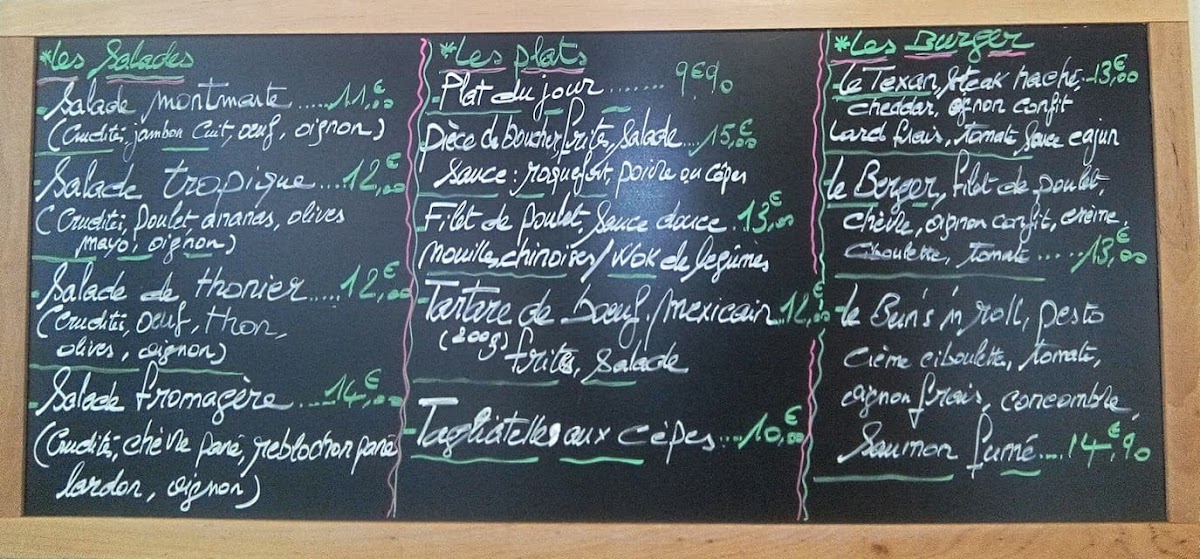 *Les Salades
- Salade montmarte ..... 11,€00
(Crudité, jambon cuit, oeuf, oignon)
- Salade tropique ... 12,€00
(Crudité, poulet ananas, olives
mayo, oignon)
- Salade de thonier ..... 12,€00
(Crudités, oeuf, thon,
olives, oignon)
- Salade fromagère .... 14,€00
(Crudité, chèvre pané, reblochon pané
lardon, oignon)
*Les plats
- Plat du jour ....... 9€90
Pièce de boucher, frites, salade .... 15,€00
Sauce : roquefort, poivre ou cèpes
Filet de poulet, sauce douce . 13,€00
nouilles chinoises / Wok de légumes
- Tartare de boeuf / mexicain ... 12,€00
(200g) frites, Salade
- Tagliatelles aux cèpes .... 10,€00
*Les Burger
le Texan, steak haché, 13,€00
cheddar, oignon confit
lard frais, tomate, sauce cajun
le Berger, filet de poulet,
chèvre, oignon confit, crème,
ciboulette, tomate ..... 13,€00
- le Bun's n' roll, pesto
crème ciboulette, tomate,
oignon frais, concombre,
saumon fumé .... 14€90